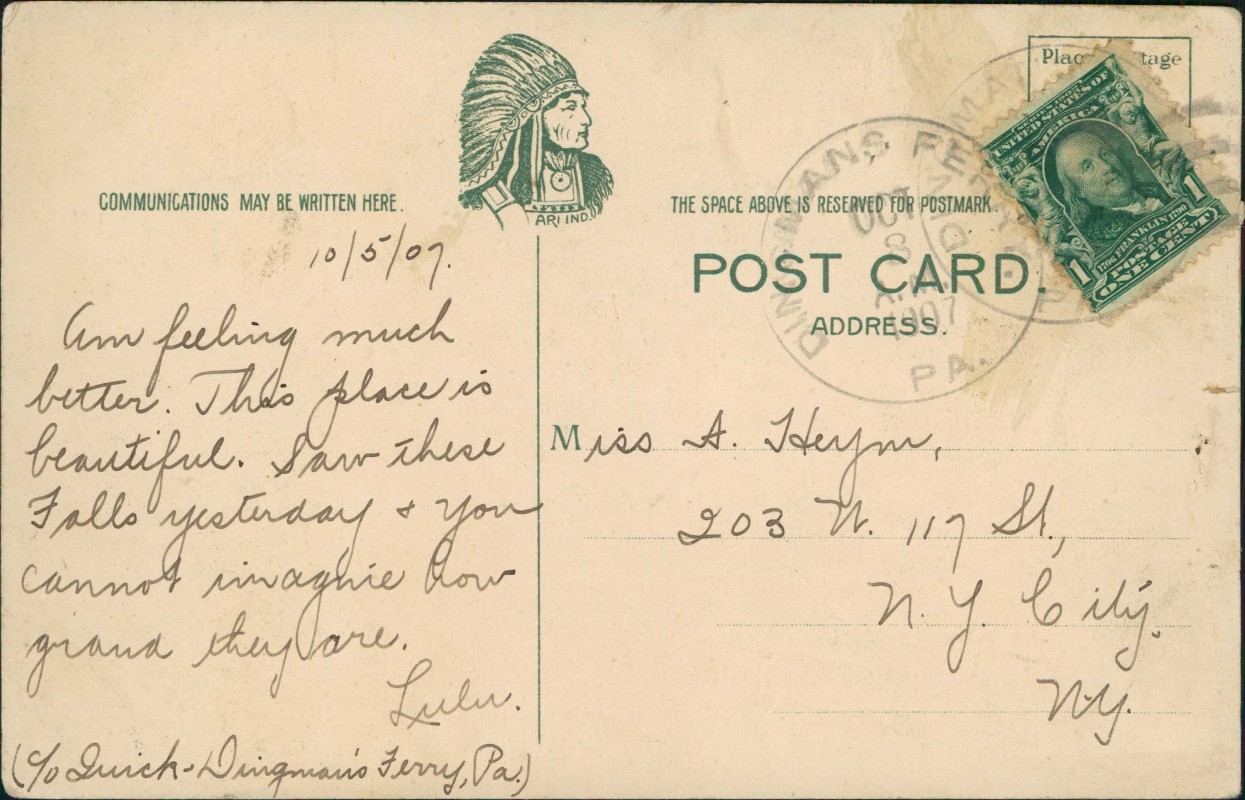 COMMUNICATIONS MAY BE WRITTEN HERE.
ARI IND.
10/5/07.
Am feeling much
better. This place is
beautiful. Saw these
Falls yesterday & you
cannot imagine how
grand they are.
Lulu.
(c/o Quick-Dingman's Ferry, Pa.)
THE SPACE ABOVE IS RESERVED FOR POSTMARK.
POST CARD.
ADDRESS.
Miss A. Heym,
203 W. 117 St.,
N. Y. City.
N.Y.
DINGMANS FERRY
OCT
8
A.M.
1907
PA.
UNITED STATES OF
AMERICA
1706 FRANKLIN 1790
POSTAGE
1 ONE CENT 1